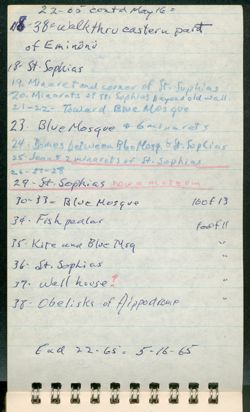 22-65 contd May 16=
18-38=walk thru eastern part
of Eminönü
18-St. Sophias
19. Minaret and corner of St. Sophias
20. Minarets of St. Sophias beyond old wall
21-22- Toward Blue Mosque
23. Blue Mosque & 6 minarets
24. Domes between Blue Mosq & St. Sophias
25. Jean & 2 minarets of St. Sophias
26-27-28
29-St. Sophias now a museum
30-33- Blue Mosque 100f13
34. Fish pedlar 100f11
35. Kite and Blue Msq "
36-St. Sophias "
37. Well house? "
38-Obelisks of Hippodrome "
End 22-65= 5-16-65